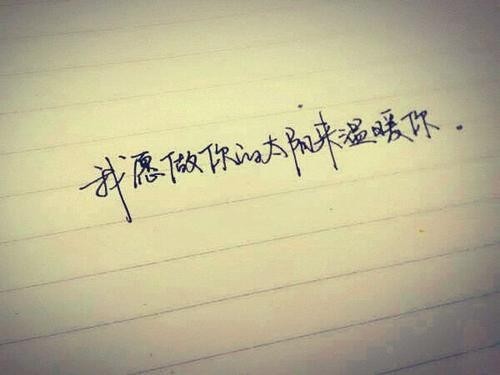 我愿做你的太阳来温暖你.